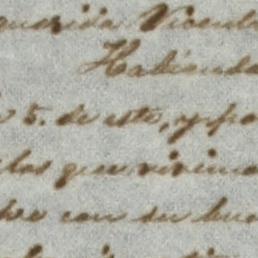 querida Vicenta
Habiendo
5. de este, y po
los que vivimo
con su bue